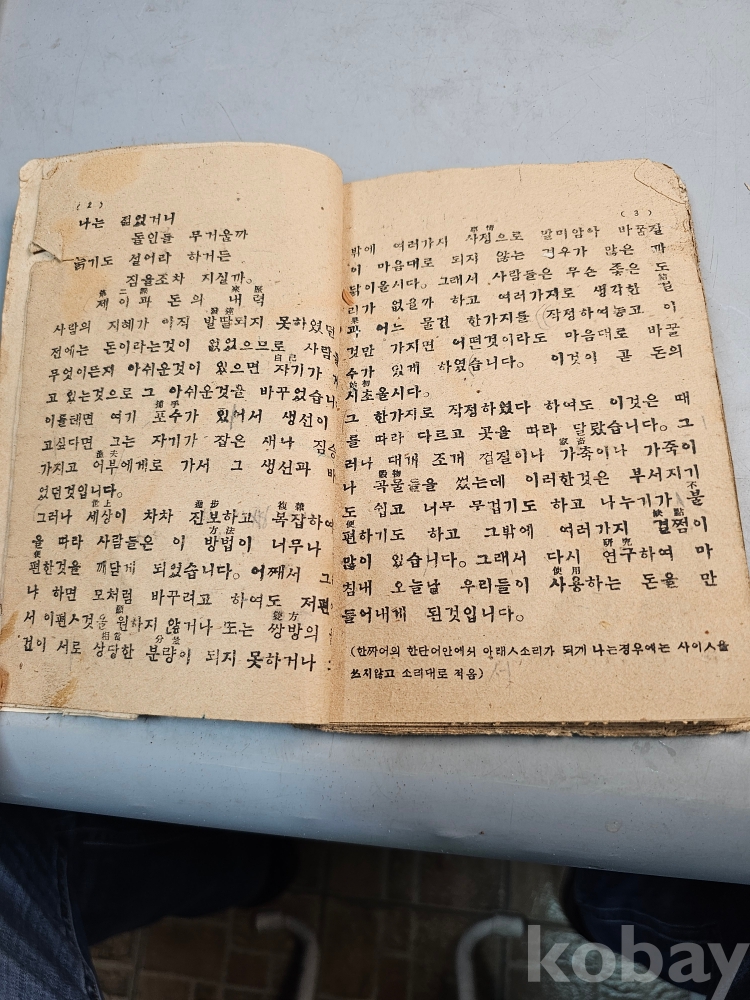 (2)
나는 젊었거니
돌인들 무거울까
늙기도 설어라 하거든
짐을조차 지실까。
第二課 來歷
제이과 돈의 내력
發達
사람의 지혜가 아직 발딸되지 못하였던
전에는 돈이라는것이 없었으므로 사람
自己
무엇이든지 아쉬운것이 있으면 자기가
고 있는것으로 그 아쉬운것을 바꾸었습니
捕手
이를테면 여기 포수가 있어서 생선이
고싶다면 그는 자기가 잡은 새나 짐승
漁夫
가지고 어부에게로 가서 그 생선과 바
었던것입니다。
世上 進步 複雜
그러나 세상이 차차 진보하고 복잡하여
方法
을 따라 사람들은 이 방법이 너무나
便
편한것을 깨닫게 되었습니다。 어째서 그
냐 하면 모처럼 바꾸려고 하여도 저편
願 雙方
서 이편ㅅ것을 원하지 않거나 또는 쌍방의
相當 分量
건이 서로 상당한 분량이 되지 못하거나
(3)
事情
밖에 여러가지 사정으로 말미암아 바꿈질
이 마음대로 되지 않는 경우가 많은 까
닭이올시다。 그래서 사람들은 무슨 좋은 도
結
리가 없을까 하고 여러가지로 생각한 결
果
과 어느 물건 한가지를 작정하여놓고 이
것만 가지면 어떤것이라도 마음대로 바꿀
수가 있게 하였습니다。 이것이 곧 돈의
始初
시초올시다。
그 한가지로 작정하였다 하여도 이것은 때
를 따라 다르고 곳을 따라 달랐습니다。 그
家畜
러나 대개 조개 껍질이나 가축이나 가죽이
穀物
나 곡물들을 썼는데 이러한것은 부서지기
不
도 쉽고 너무 무겁기도 하고 나누기가 불
便 缺點
편하기도 하고 그밖에 여러가지 결쩜이
硏究
많이 있습니다。 그래서 다시 연구하여 마
使用
침내 오늘날 우리들이 사용하는 돈을 만
들어내게 된것입니다。
(한짜어의 한단어안에서 아래ㅅ소리가 되게 나는경우에는 사이ㅅ을
쓰지않고 소리대로 적음)
kobay